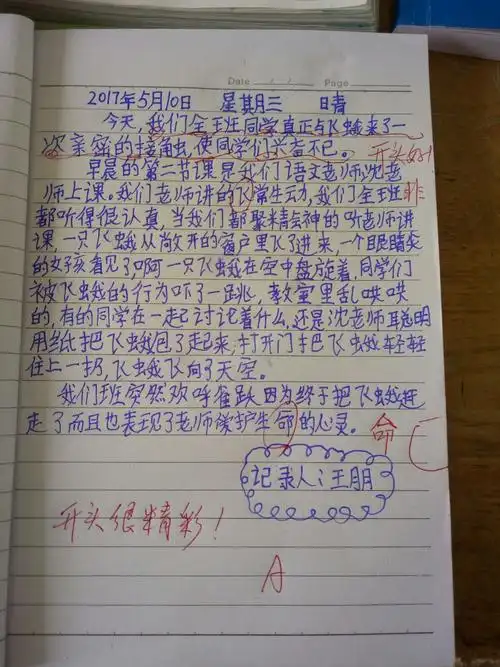 Date / / Page
2017年5月10日 星期三 日晴
今天,我们全班同学真正与飞蛾来了一
次亲密的接触,使同学们兴奋不已。
开头好!
早晨的第二节课是我们语文老师,沈老
师上课。我们老师讲的飞常生动,我们全班
非
都听得很认真,当我们都聚精会神的听老师讲
课,一只飞蛾从敞开的窗户里飞了进来,一个眼睛尖
的女孩看见了啊一只飞蛾在空中盘旋着,同学们
被飞蛾的行为吓了一跳,教室里乱哄哄
的,有的同学在一起讨论着什么,还是沈老师聪明
用纸把飞蛾包了起来,打开门把飞蛾轻轻
往上一扔,飞蛾飞向了天空。
我们班突然欢呼雀跃因为终于把飞蛾赶
走了而且也表现了老师爱护生命的心灵。
命
记录人:王朋
开头很精彩!
A